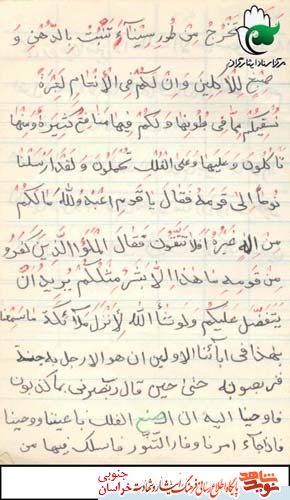 تخرج مِن طورِ سیناءَ تنبُتُ بِالدّهنِ وَ
صبغ للاکلین وَ اِنَّ لکُم فی الأنعامِ لعبرة
نُسقیکُم مِمّا فی بُطونها وَ لکُم فیها منافع کثیرة وَ منها
تأکلون وَ علیها وَ علی الفلکِ تُحملون وَ لقد ارسلنا
نوحاً الی قومه فقال یا قومِ اعبدوُ اللهَ مالکم
مِن اِلهٍ غیرُهُ افلا تتّقون فقال الملؤا الّذین کفرو
مِن قومه ما هذا اِلّا بشر مثلکم یرید اَن
یتفضّل علیکم و لو شاء اللهُ لَاَنزل ملائکة ما سمعنا
بهذا فی ابآئنا الاولین ان هو الا رجل به جنة
فتربصوا به حتی حین قال رب انصرنی بما کذبون
فاوحینا الیه ان اصنع الفلک باعیننا و وحینا
فاذا جاء امرنا و فار التنّور فاسلک فیها من
مرکز اسناد ایثارگران
نوید شاهد
پایگاه اطلاع رسانی فرهنگ ایثار و شهادت
خراسان جنوبی